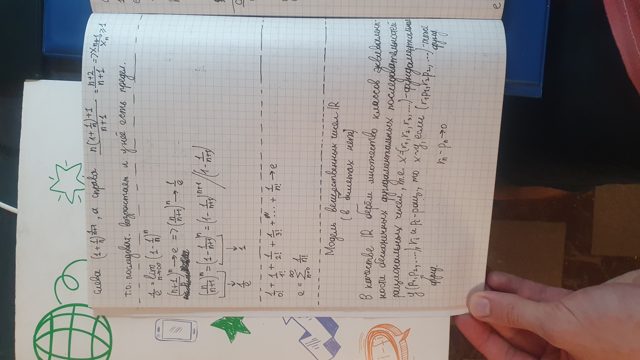 слева (1+1/n)^{n+1}, а справа n(1+1/n)+1 / n+1 = n+2/n+1 => x_{n+1}/x_n ≥ 1
т.о. последоват. возрастает и у неё есть предел.
1/e = lim_{n→∞} (1-1/n)^n
(n+1/n)^n → e => (n/n+1)^n → 1/e
(n/n+1)^n = (1-1/n+1)^n = (1-1/n+1)^{n+1} / (1-1/n+1)
1/e 1
1/0! + 1/1! + 1/2! + 1/3! + ... + 1/n! → e
e = Σ_{n=0}^∞ 1/n!
Модель вещественных чисел ℝ
(в билетах нет)
В качестве ℝ берём множество классов эквивалент-
ности бесконечных фундаментальных последовательностей
рациональных чисел, т.е. x {r₁, r₂, r₃, ...} - фундаментальная
y {p₁, p₂, ...}, rᵢ и pᵢ - рац, то x~y, если (r₁, p₁, r₂, p₂, ...) - тоже
фунд фунд
rₙ - pₙ → 0